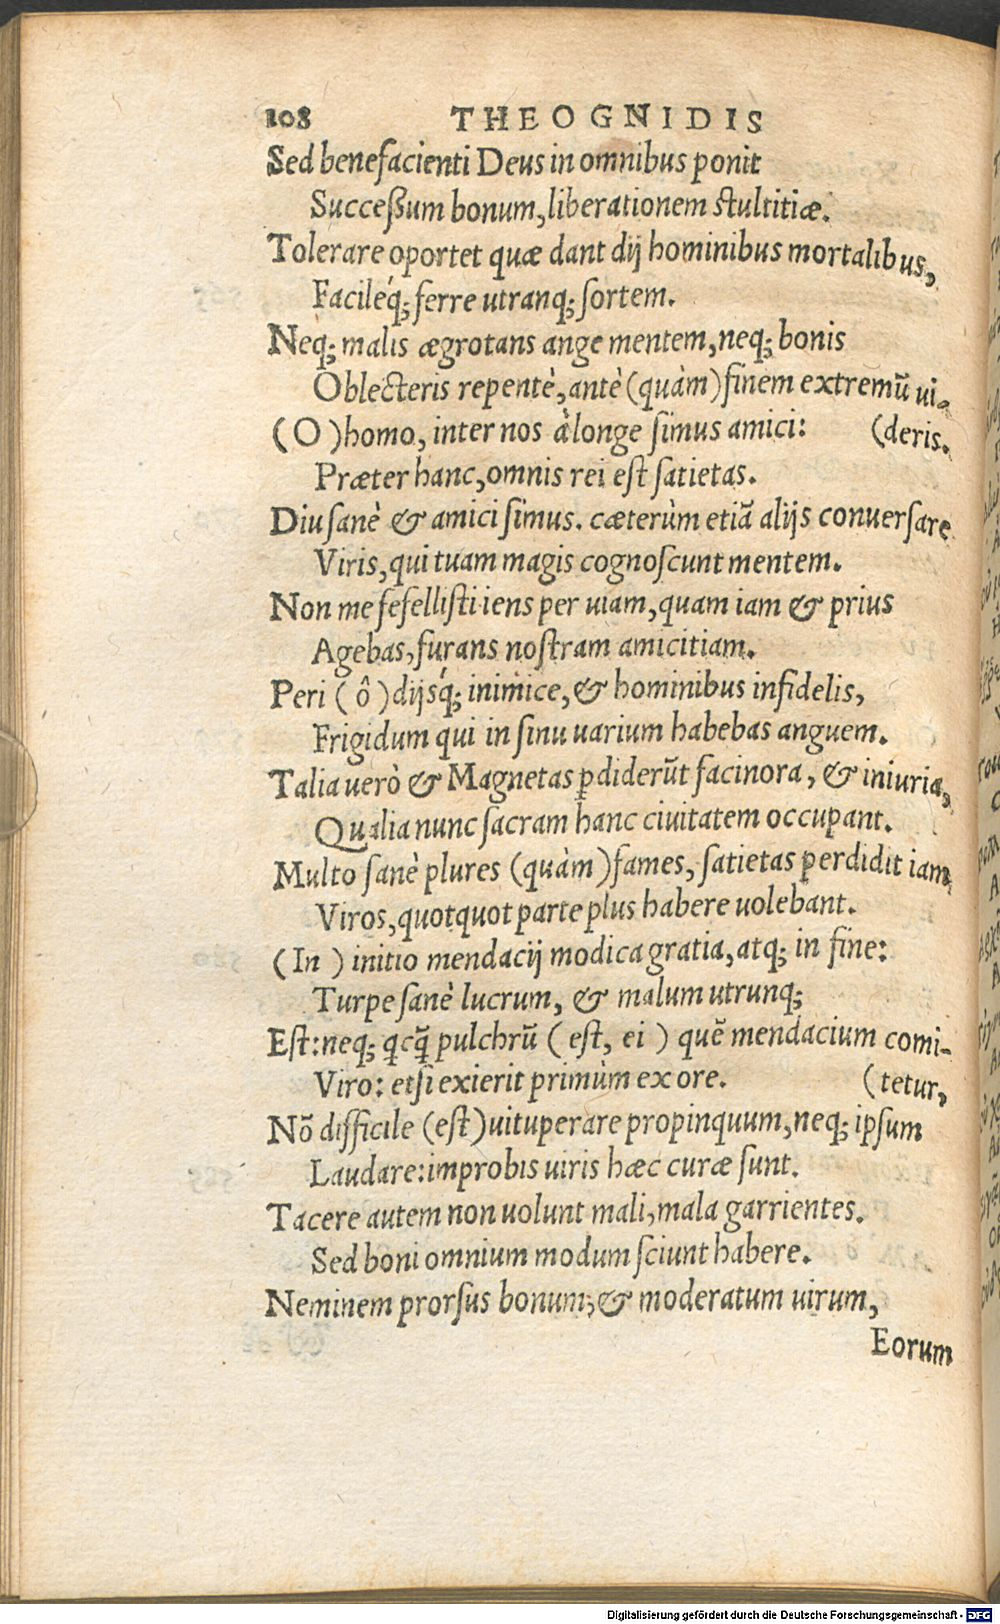 108 THEOGNIDIS
Sed benefacienti Deus in omnibus ponit
Succeßum bonum, liberationem stultitiæ.
Tolerare oportet quæ dant dij hominibus mortalibus,
Facileq́; ferre utranq; sortem.
Neq; malis ægrotans ange mentem, neq; bonis
Oblecteris repentè, antè (quàm) finem extremũ vi-
(O) homo, inter nos à longe simus amici: (deris.
Præter hanc, omnis rei est satietas.
Diu sanè & amici simus. cæterùm etiã alijs conuersare
Viris, qui tuam magis cognoscunt mentem.
Non me fefellisti iens per uiam, quam iam & prius
Agebas, furans nostram amicitiam.
Peri (ô) dijsq́; inimice, & hominibus infidelis,
Frigidum qui in sinu uarium habebas anguem.
Talia uerò & Magnetas ꝑdiderũt facinora, & iniuriæ,
Qualia nunc sacram hanc ciuitatem occupant.
Multo sanè plures (quàm) fames, satietas perdidit iam
Viros, quotquot parte plus habere uolebant.
(In) initio mendacij modica gratia, atq; in fine:
Turpe sanè lucrum, & malum utrunq;
Est: neq; qcq̃ pulchrũ (est, ei) quẽ mendacium comi-
Viro: etsi exierit primùm ex ore. (tetur,
Nõ difficile (est) uituperare propinquum, neq; ipsum
Laudare: improbis uiris hæc curæ sunt.
Tacere autem non uolunt mali, mala garrientes.
Sed boni omnium modum sciunt habere.
Neminem prorsus bonum, & moderatum uirum,
Eorum
Digitalisierung gefördert durch die Deutsche Forschungsgemeinschaft - DFG